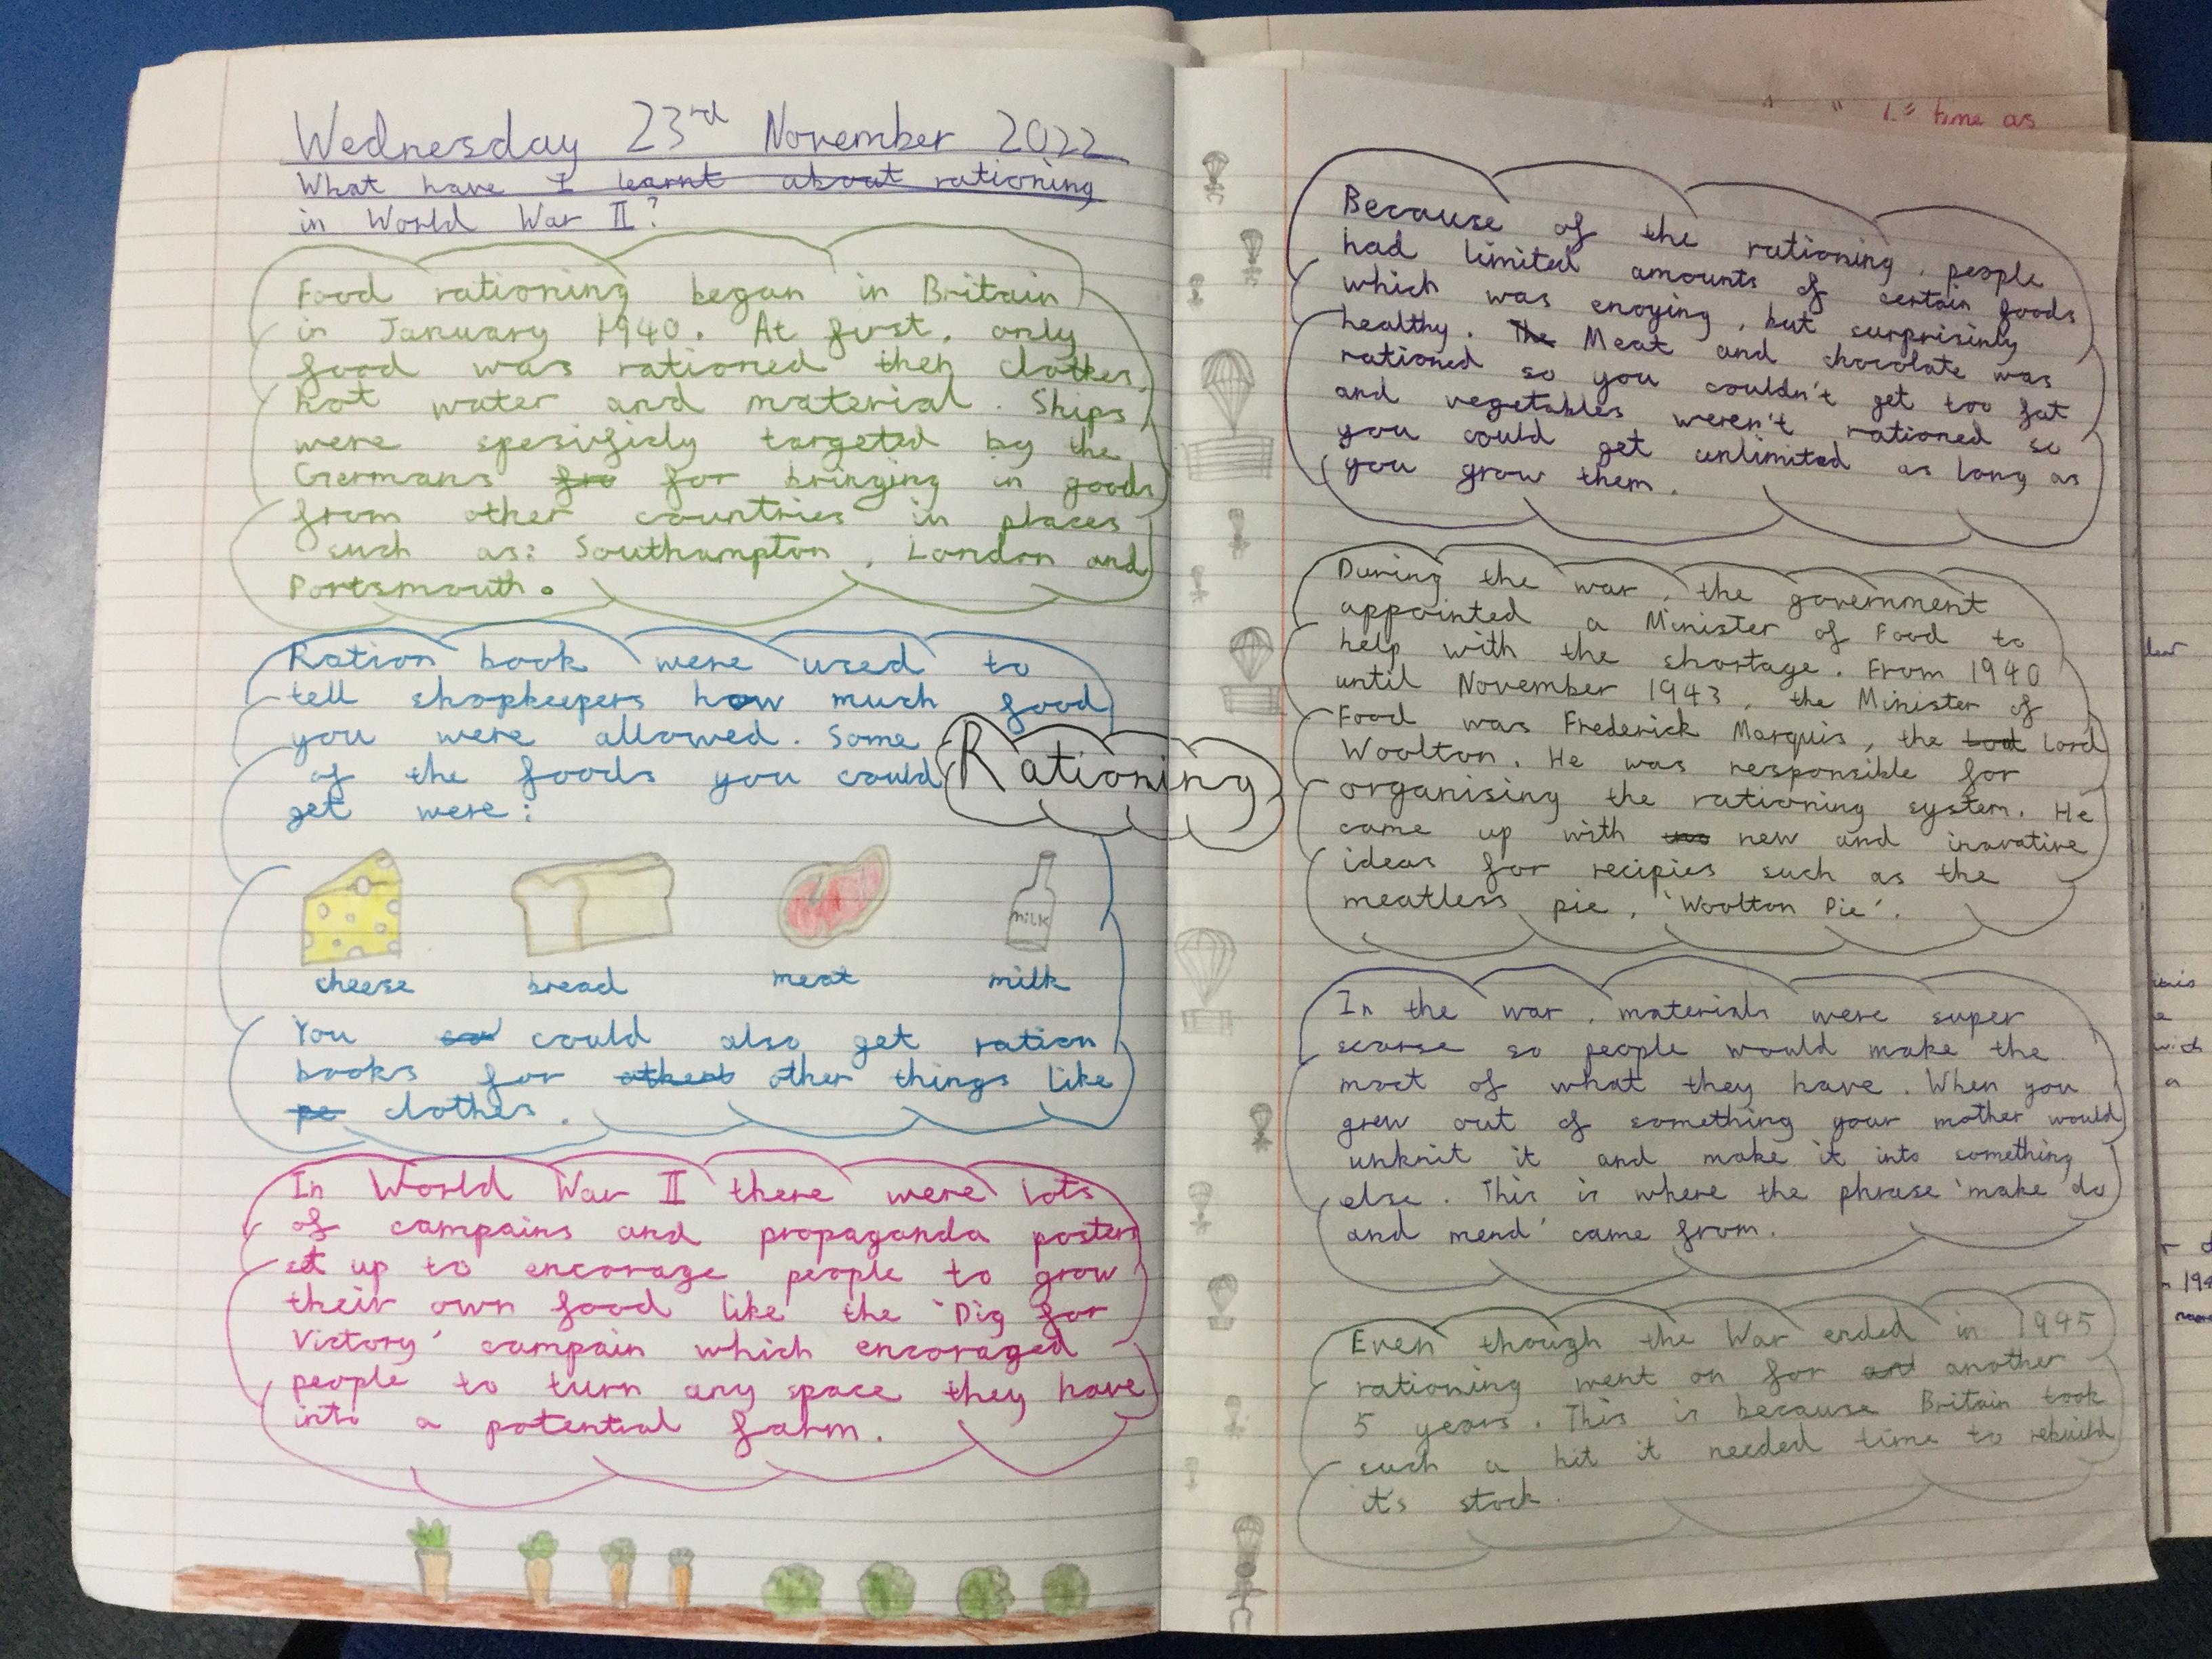 Wednesday 23rd November 2022
What have I learnt about rationing
in World War II?
Food rationing began in Britain
in January 1940. At first, only
food was rationed then clothes,
hot water and material. Ships
were spesificly targeted by the
Germans fro for bringing in goods
from other countries in places
such as: Southampton, London and
Portsmouth.
Ration book were used to
tell shopkeepers how much food
you were allowed. Some
of the foods you could
get were:
MILK
cheese bread meat milk
You could also get ration
books for other things like
clothes.
In World War II there were lots
of campains and propaganda posters
set up to encorage people to grow
their own food like the 'Dig for
Victory' campain which encoraged
people to turn any space they have
into a potential farm.
Rationing
time as
Because of the rationing, people
had limited amounts of certain foods
which was enoying, but surprisinly
healthy. The Meat and chocolate was
rationed so you couldn't get too fat
and vegetables weren't rationed so
you could get unlimited as long as
you grow them.
During the war, the government
appointed a Minister of Food to
help with the shortage. From 1940
until November 1943, the Minister of
Food was Frederick Marquis, the Lord
Woolton. He was responsible for
organising the rationing system. He
came up with new and inavative
ideas for recipies such as the
meatless pie, 'Woolton Pie'.
In the war, materials were super
scarse so people would make the
most of what they have. When you
grew out of something your mother would
unknit it and make it into something
else. This is where the phrase 'make do
and mend' came from.
Even though the War ended in 1945
rationing went on for another
5 years. This is because Britain took
such a hit it needed time to rebuild
it's stock.